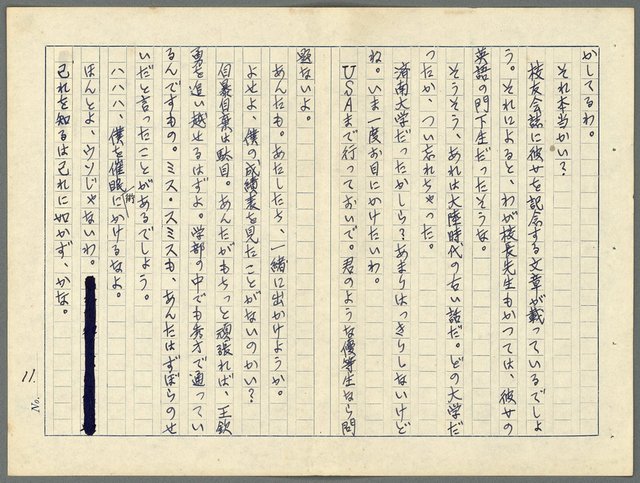 かしてるわ。
それ本当かい？
校友会誌に彼女を記念する文章が載っているでしょ
う。それによると、わが校長先生もかつては、彼女の
英語の門下生だったそうな。
そうそう、あれは大陸時代の古い話だ。どの大学だ
ったか、つい忘れちゃった。
済南大学だったかしら？あまりはっきりしないけど
ね。いま一度お目にかけたいわ。
USAまで行っておいで。君のような優等生なら問
題ないよ。
あんたも。あたしたち、一緒に出かけようか。
よせよ、僕の成績表を見たことがないのかい？
自暴自棄は駄目。あんたがもちっと頑張れば、王欽
勇を追い越せるはずよ。学部の中でも秀才で通ってい
るんですもの。ミス・スミスも、あんたはずぼらのせ
いだと言ったことがあるでしょう。
ハハハ、僕を催眠術にかけるなよ。
ほんとよ、ウソじゃないわ。
己れを知るは己れに如かず、かな。
11.
No.